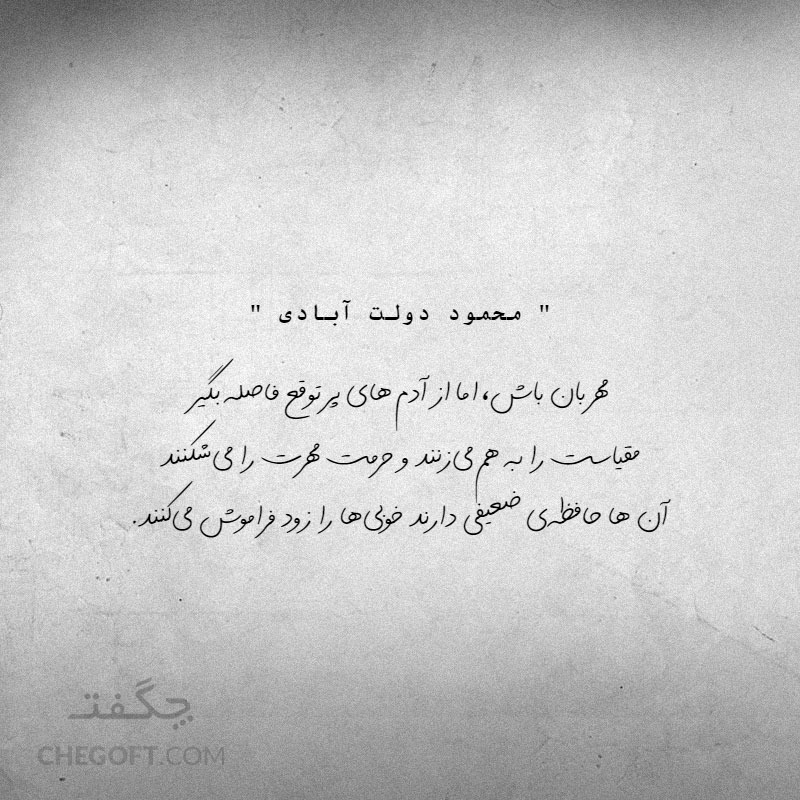 " محمود دولت آبادی "
مهربان باش، اما از آدم های پر توقع فاصله بگیر
مقیاست را به هم می‌زنند و حرمت مهرت را می‌شکنند
آن ها حافظه‌ی ضعیفی دارند خوبی‌ها را زود فراموش می‌کنند.
چگفت
CHEGOFT.COM